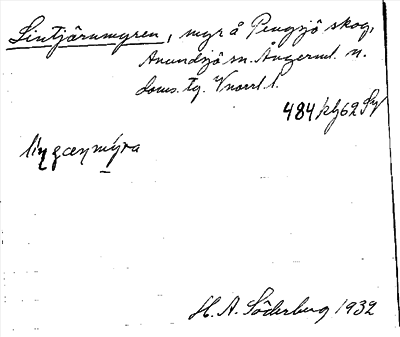 Lintjärnmyren, myr å Pengsjö skog,
Anundsjö sn. Ångerml. n.
doms. tg. Vnorrl. l.
484 62
H. A. Söderberg 1932